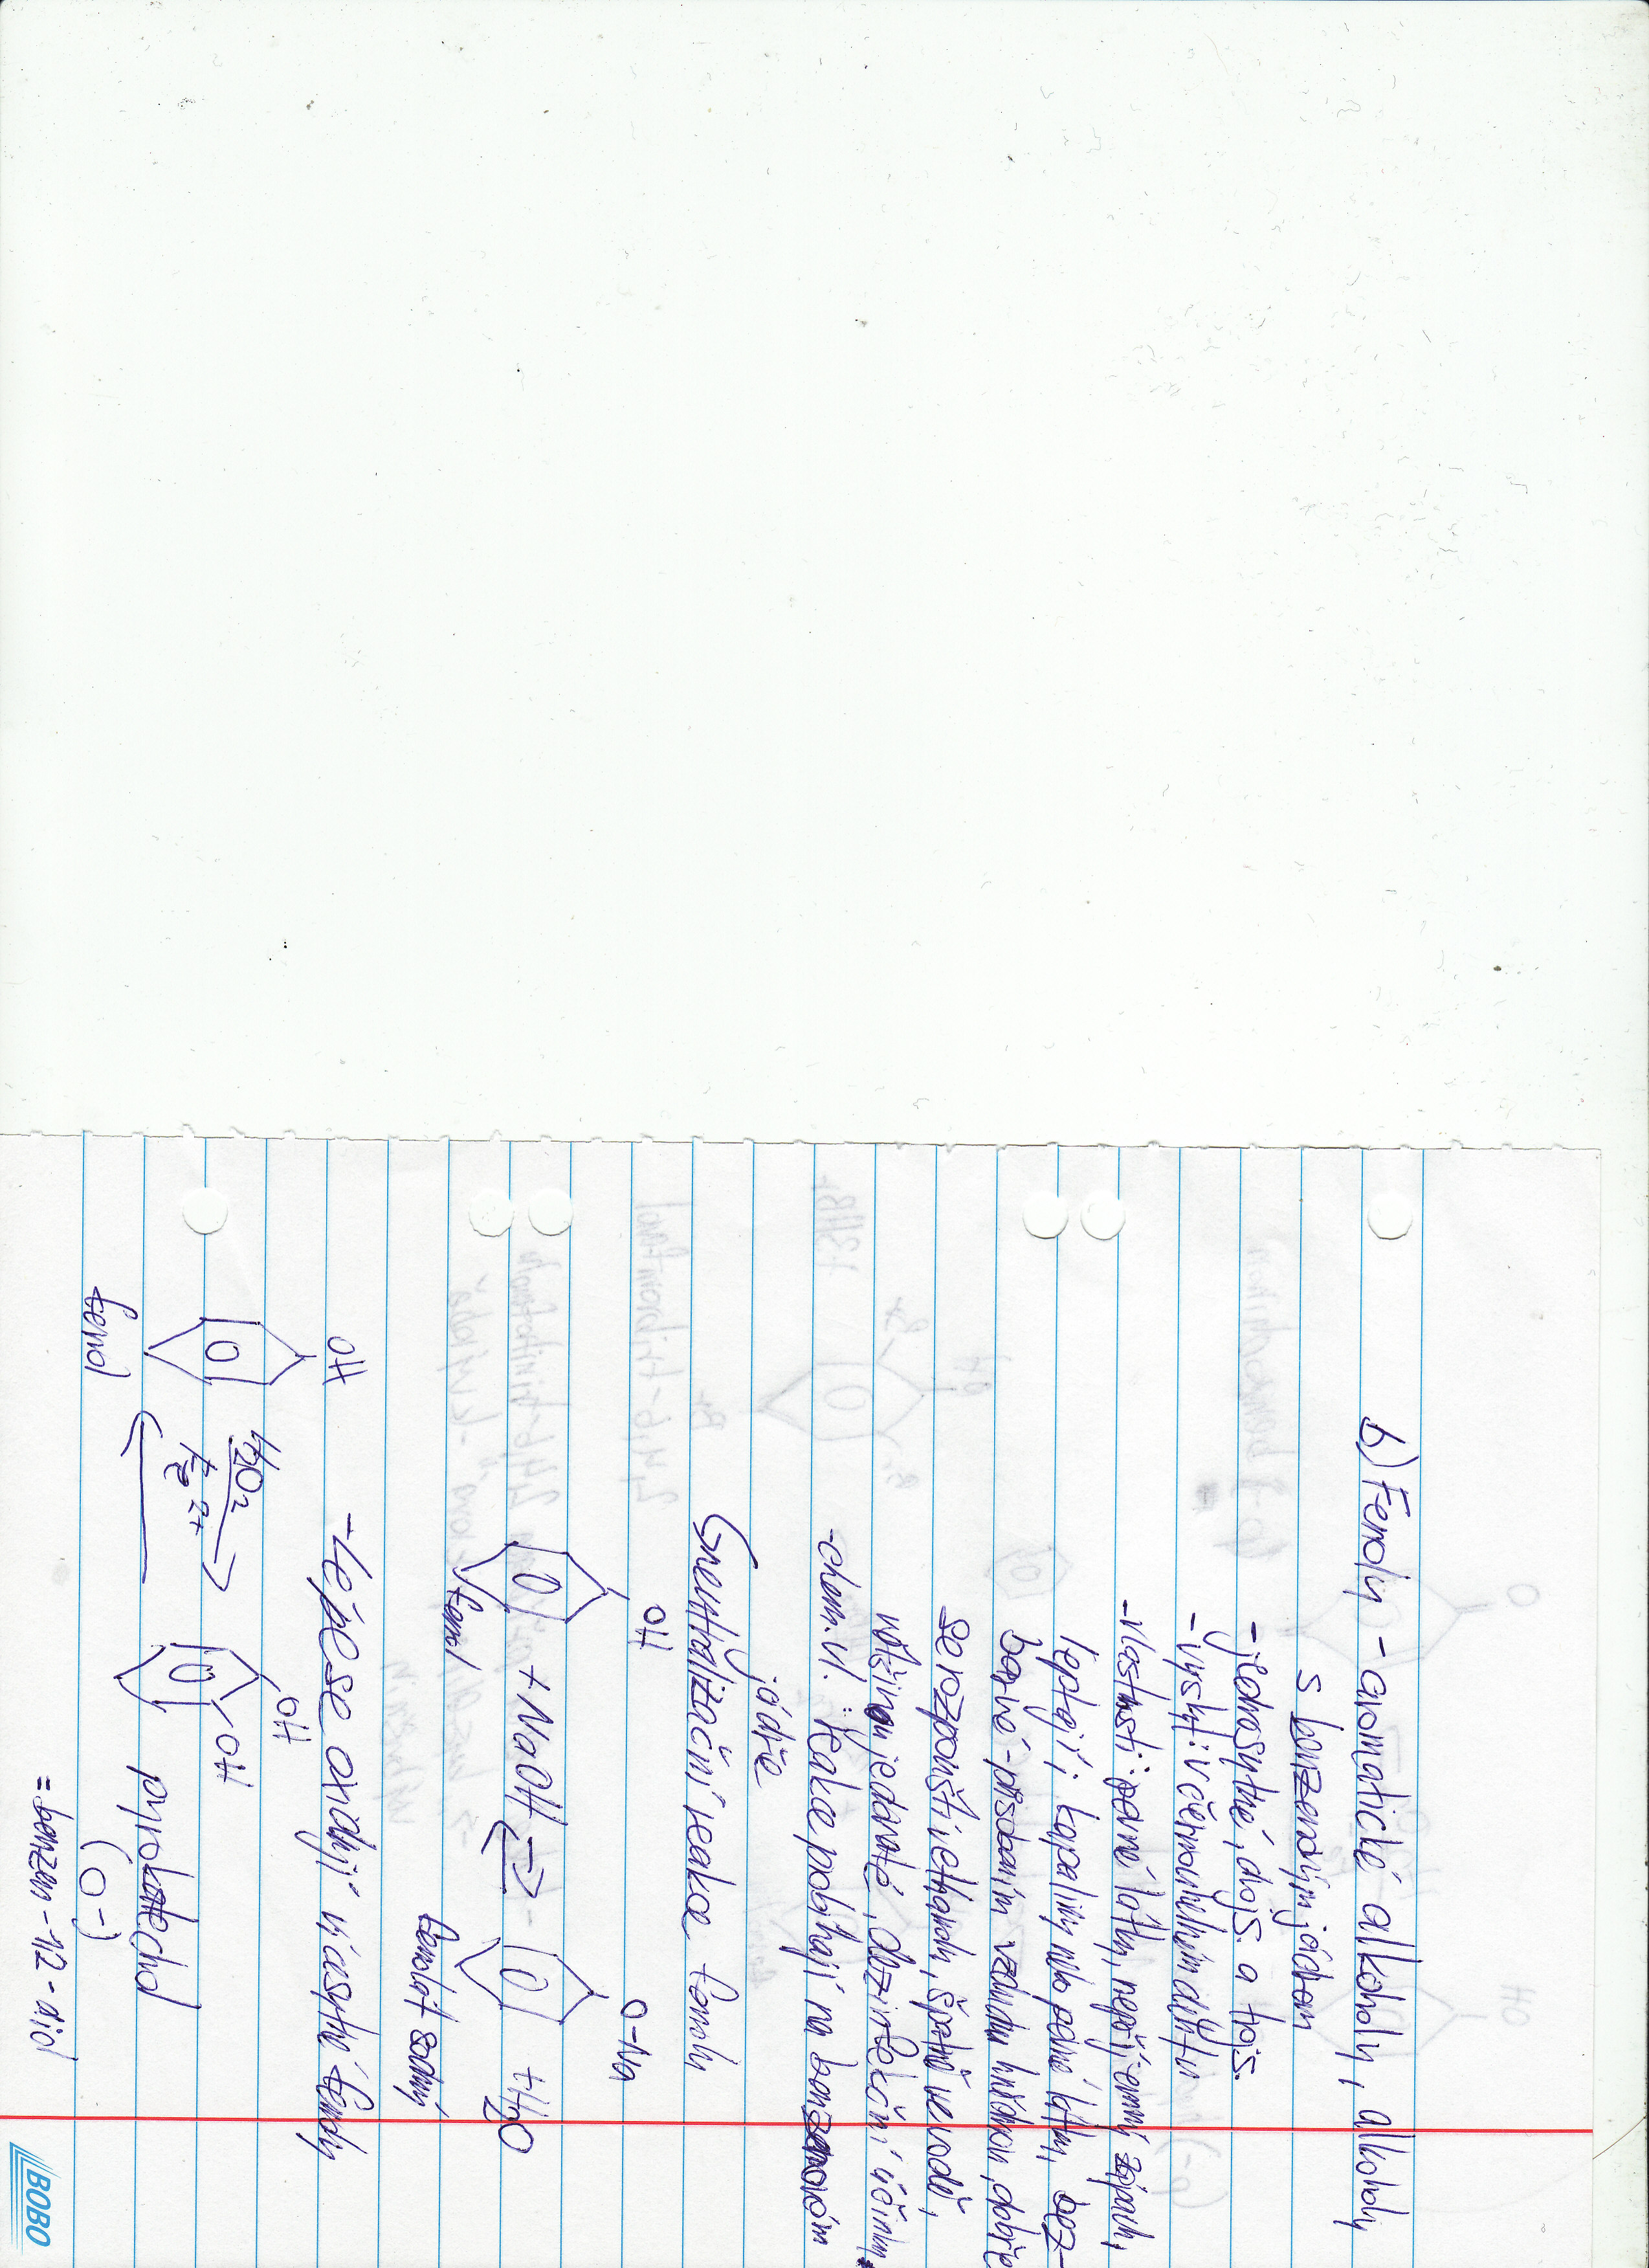 b) Fenoly - aromatické alkoholy, alkoholy
s benzenovým jádrem
- jednosytné, dojs. a trojs.
- výskyt: v černouhelném dehtu
- vlastnosti: pevné látky, nepříjemný zápach,
leptají; kapaliny nebo pevné látky, bez-
barvé - působením vzduchu hnědnou, dobře
se rozpouští v ethanolu, špatně ve vodě,
většinou jedovaté, dezinfekční účinky,
- chem. vl.: reakce probíhají na benzenovém
jádře
neutralizační reakce fenolu
OH
O-Na
+ NaOH ⇌
+ H2O
fenol
fenolát sodný
- lépe se oxidují vícesytné fenoly
OH
H2O2
Fe2+
OH
OH
fenol
pyrokatechol
(o-)
= benzen-1,2-diol
BOBO